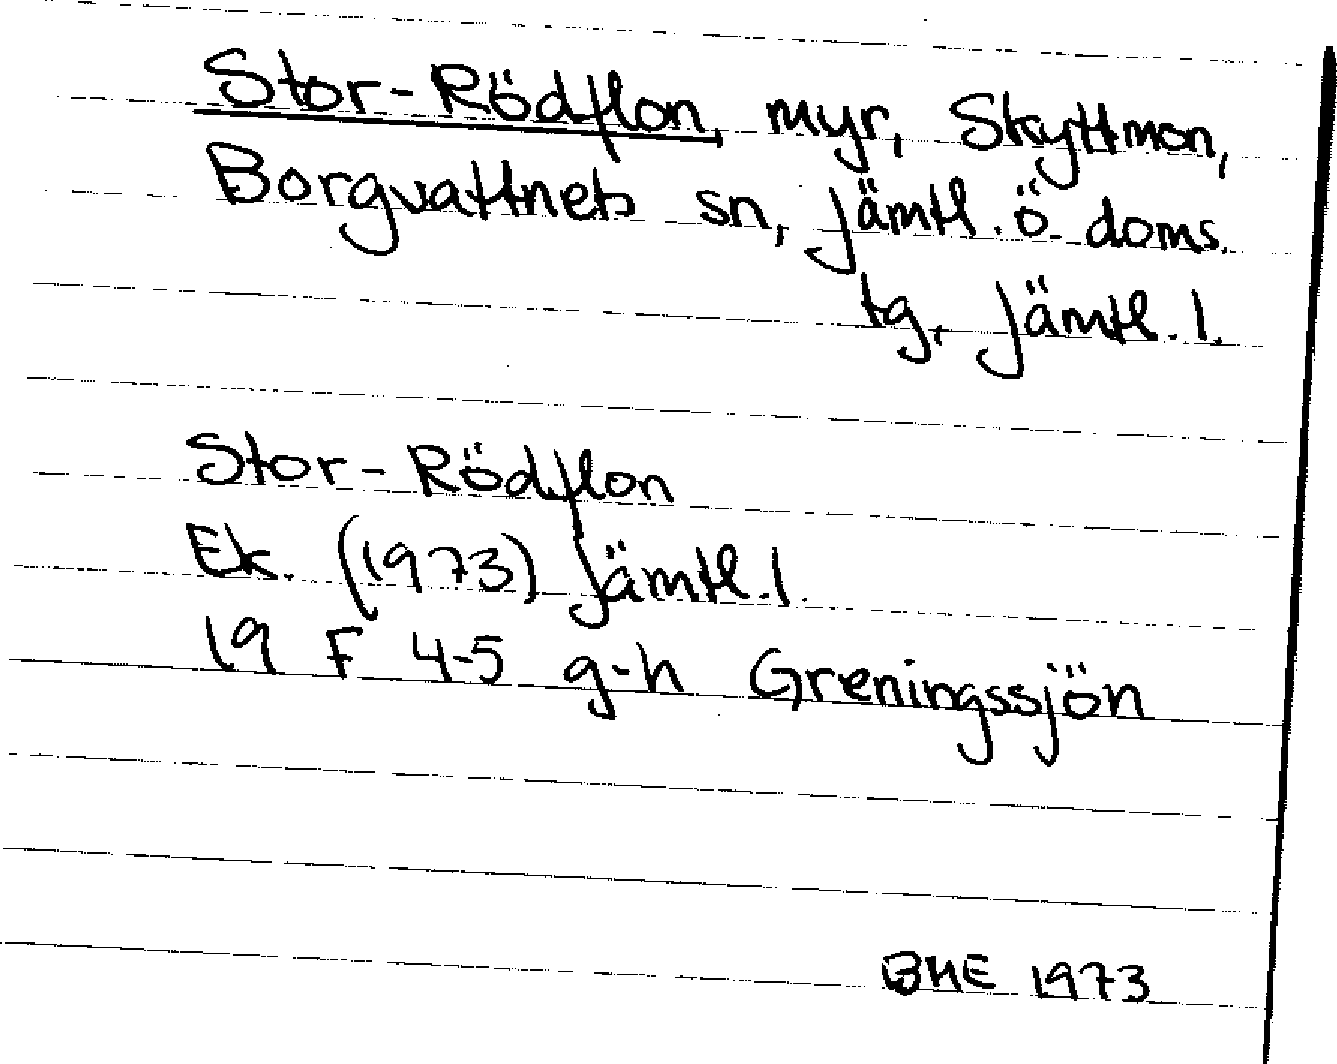 Stor-Rödflon, myr, Skyttmon,
Borgvattnets sn, Jämtl. ö. doms.
tg, Jämtl. l.
Stor-Rödflon
Ek. (1973) Jämtl. l.
19 F 4-5 g-h Greningssjön
BHE 1973